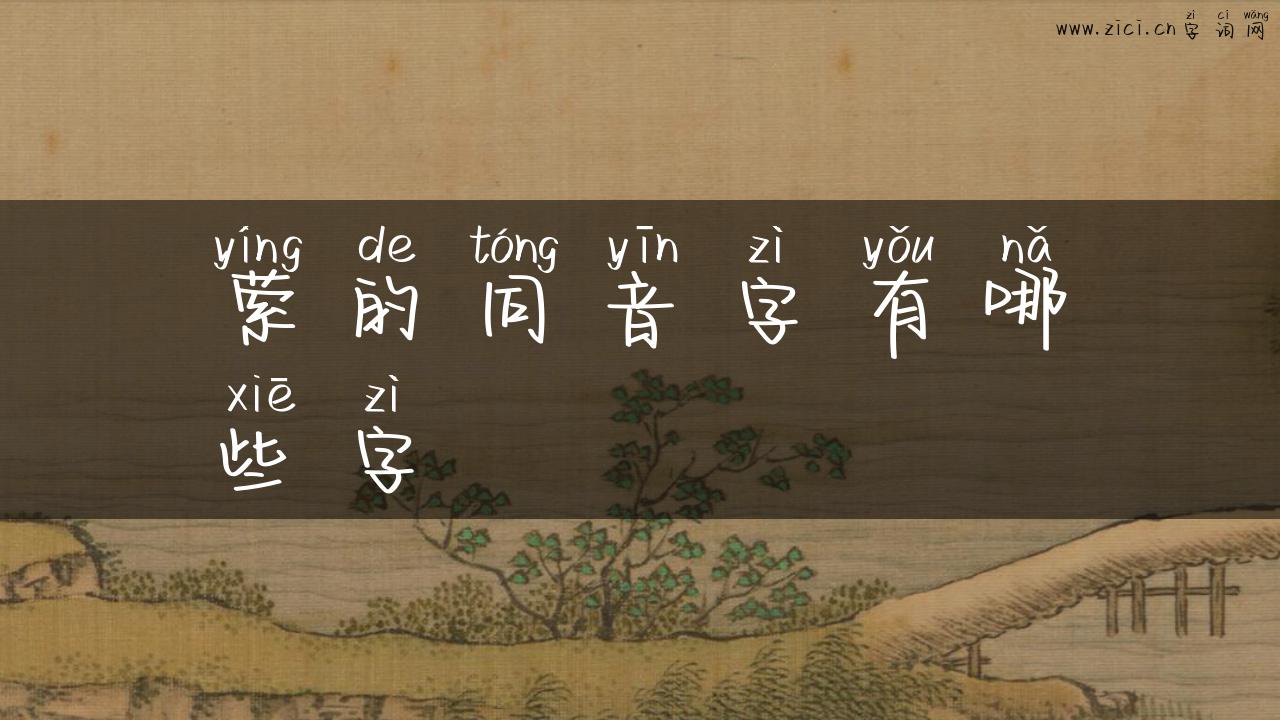 zì cí wǎng
www.zici.cn 字 词 网
yíng de tóng yīn zì yǒu nǎ
萦 的 同 音 字 有 哪
xiē zì
些 字